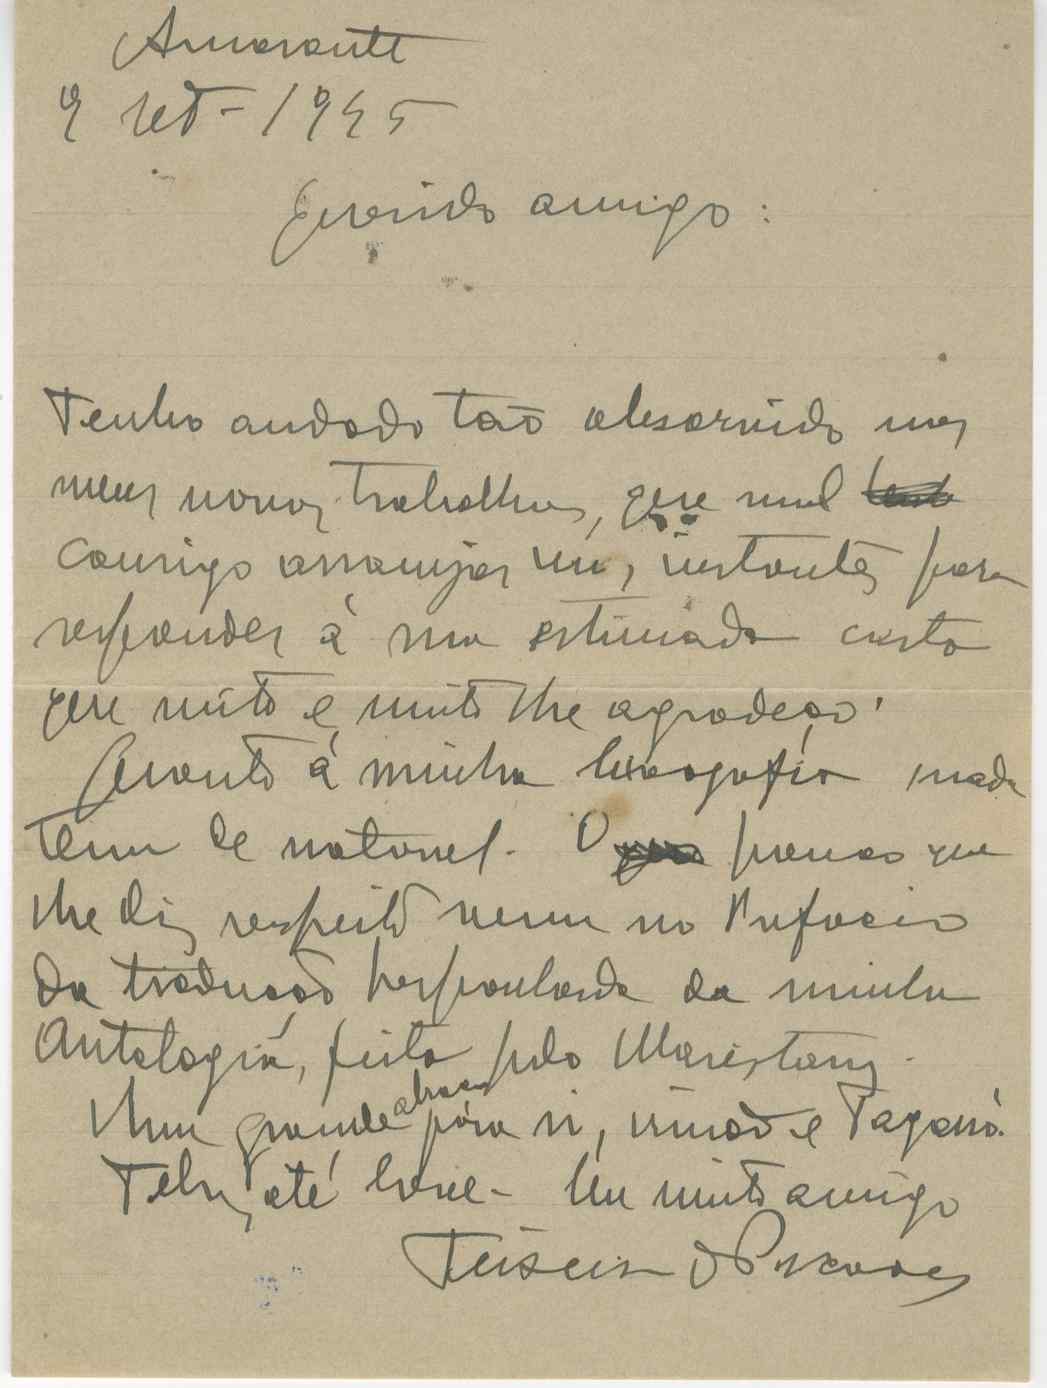 Amarante
9 Set - 1945
Querido amigo:
Tenho andado tão absorvido nos
meus novos trabalhos, que mal
consigo arranjar uns instantes para
responder á sua estimada carta
que muito e muito lhe agradeço.
Quanto á minha biografia nada
tem de notavel. O pouco que
lhe diz respeito vem no Prefacio
da tradução hespanhola da minha
Antologia, feita pelo Maristany.
Um grande abraço para si, irmão e
até breve - Seu muito amigo
Teixeira de Pascoaes